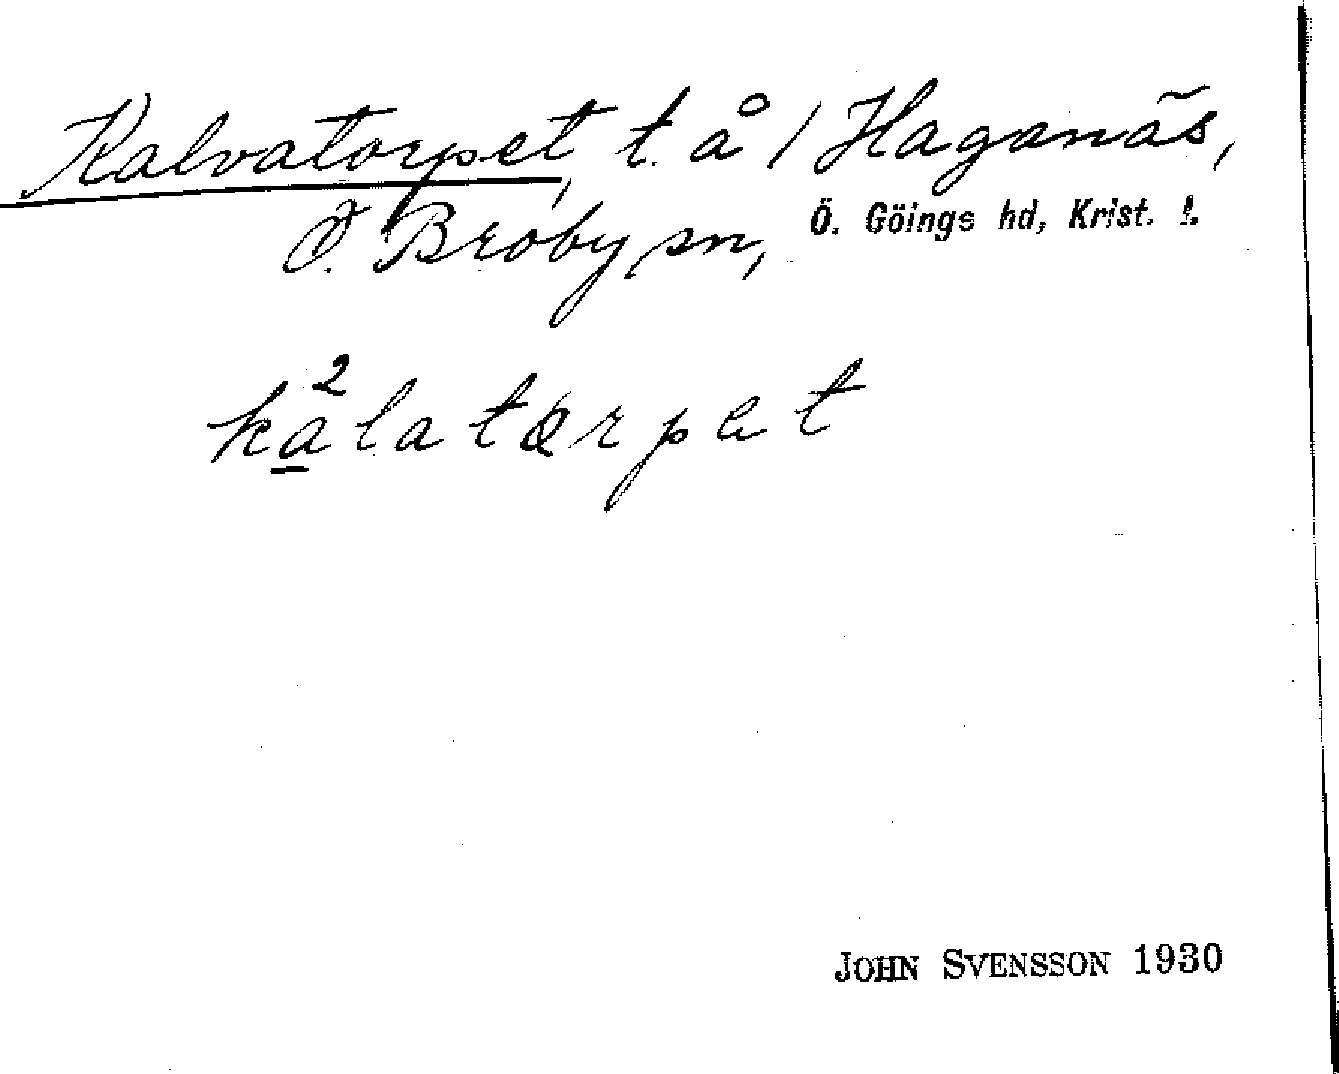 Kalvatorpet, t. å / Haganäs,
Ö. Broby sn, Ö. Göings hd, Krist. l.
kalatørpet
JOHN SVENSSON 1930